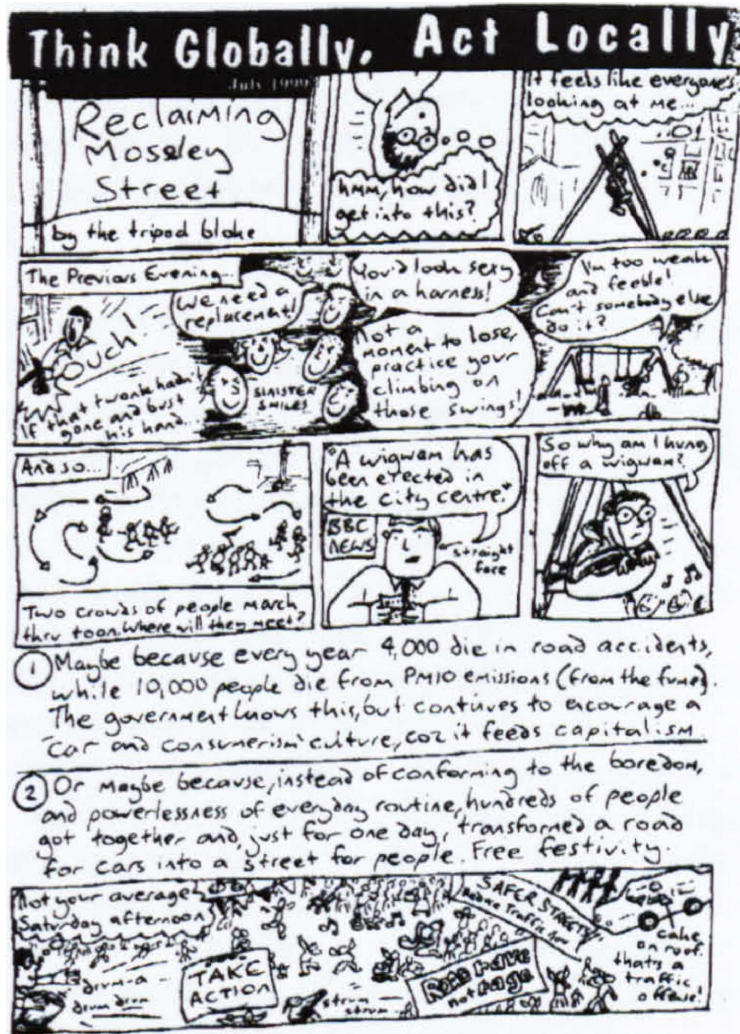 Think Globally, Act Locally
July 1999
Reclaiming
Mossley
Street
by the tripod bloke
hmm, how did I
get into this?
It feels like everyone's
looking at me...
The Previous Evening...
Ouch!
If that twonk hadn't
gone and bust
his hand...
We need a
replacement!
SINISTER
SMILES
You'd look sexy
in a harness!
Not a
moment to lose,
practice your
climbing on
those swings!
I'm too weak
and feeble!
Can't somebody else
do it?
And so...
Two crowds of people march
thru toon. Where will they meet?
"A wigwam has
been erected in
the city centre"
BBC
NEWS
straight
face
So why am I hung
off a wigwam?
① Maybe because every year 4,000 die in road accidents,
while 10,000 people die from PM10 emissions (from the fumes).
The government knows this, but continues to encourage a
'car and consumerism' culture, coz it feeds capitalism.
② Or maybe because, instead of conforming to the boredom,
and powerlessness of everyday routine, hundreds of people
got together and, just for one day, transformed a road
for cars into a street for people. Free festivity.
Not your average
Saturday afternoon
drum-a
drum drum
TAKE
ACTION
strum
strum
Road Rave
not rage
SAFER STREETS
Reduce Traffic Now
cake
on roof.
that's a
traffic
offense!